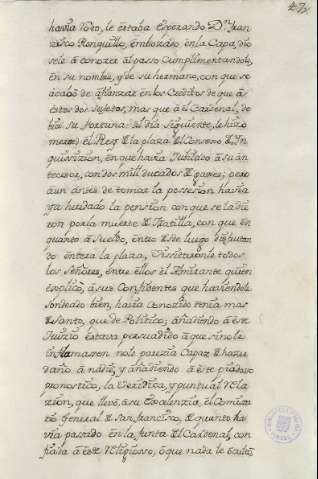 47
havia todo, le estaba esperando Dn. Fran
zisco Ronquillo, embozado en la Capa, dio
sele à conozer al passo Cumplimentandole,
en su nombre, y de su hermano, con que se
acabò de afianzar en los Creditos de que à
estos dos sujetos, mas que à el Cardenal, de
via su fortuna. El dia siguiente, le hizo
merced el Rey de la plaza del Consejo de In
quisizion, en que havia Jubilado à su an
tecesor, con dos mill ducados de gajes; pero
aun antes de tomar la possesion havia
ya heredado la pension con que se la diò
con por la muerte de Matilla, con que en
quanto à sueldo, entrò desde luego disfrutan
do entera la plaza, Visitaronle todos
los Señores, entre ellos el Almirante quien
explicò, à sus Confidentes que haviendole
sondeado bien, havia conozido tenia mas
de Santo, que de Politico; añadiendo à este
Juizio estava persuadido à que sino le
inflamassen no le parezia Capaz de hazer
daño à nadie, y añadiendo à este piadoso
pronostico, la Veridica, y puntual Rela
zion, que llevò, à su Excelenzia, el Comissa
rio General de San franzisco, de quanto ha
via passado en la Junta del Cardenal, con
fiada à este Religiosso, ò que nada le